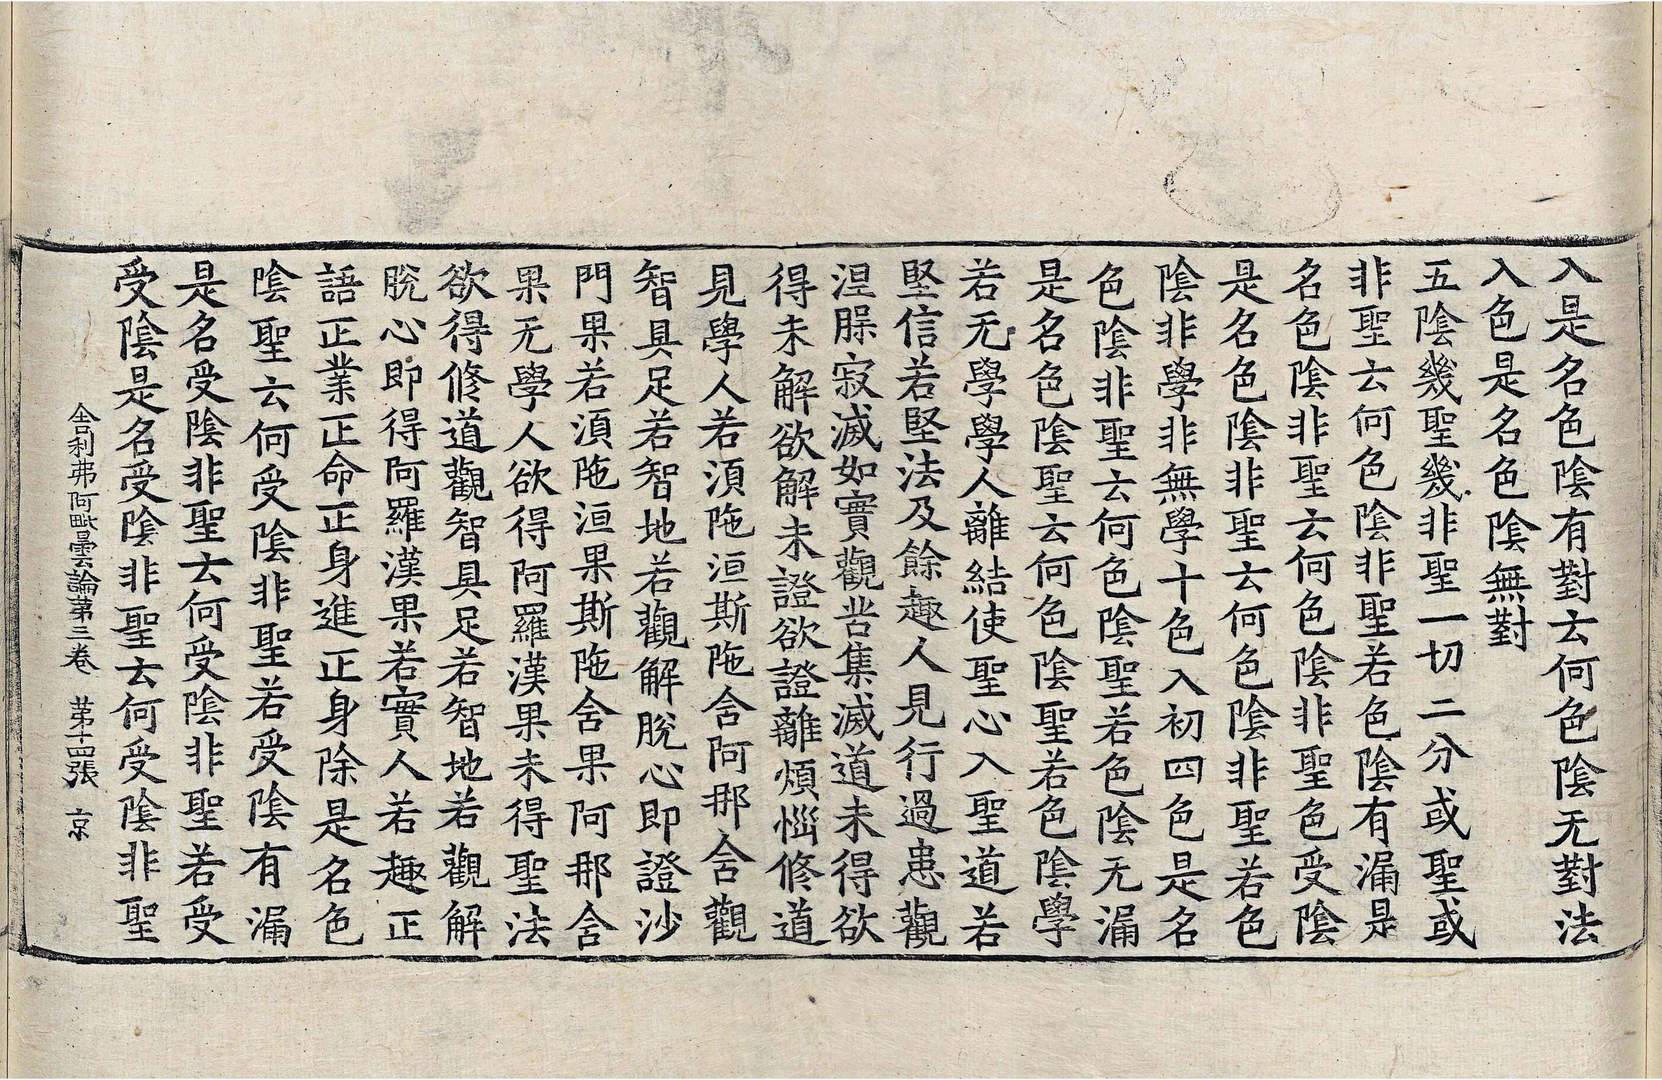 入是名色陰有對云何色陰无對法
入色是名色陰無對
五陰幾聖幾非聖一切二分或聖或
非聖云何色陰非聖若色陰有漏是
名色陰非聖云何色陰非聖色受陰
是名色陰非聖云何色陰非聖若色
陰非學非無學十色入初四色是名
色陰非聖云何色陰聖若色陰无漏
是名色陰聖云何色陰聖若色陰學
若无學學人離結使聖心入聖道若
堅信若堅法及餘趣人見行過患觀
涅槃寂滅如實觀苦集滅道未得欲
得未解欲解未證欲證離煩惱修道
見學人若須陁洹斯陁舍阿那舍觀
智具足若智地若觀解脫心即證沙
門果若湏陁洹果斯陁舍果阿那舍
果无學人欲得阿羅漢果未得聖法
欲得修道觀智具足若智地若觀解
脫心即得阿羅漢果若實人若趣正
語正業正命正身進正身除是名色
陰聖云何受陰非聖若受陰有漏
是名受陰非聖云何受陰非聖若受
受陰是名受陰非聖云何受陰非聖
舍利弗阿毗曇論第三卷 第十四張 京